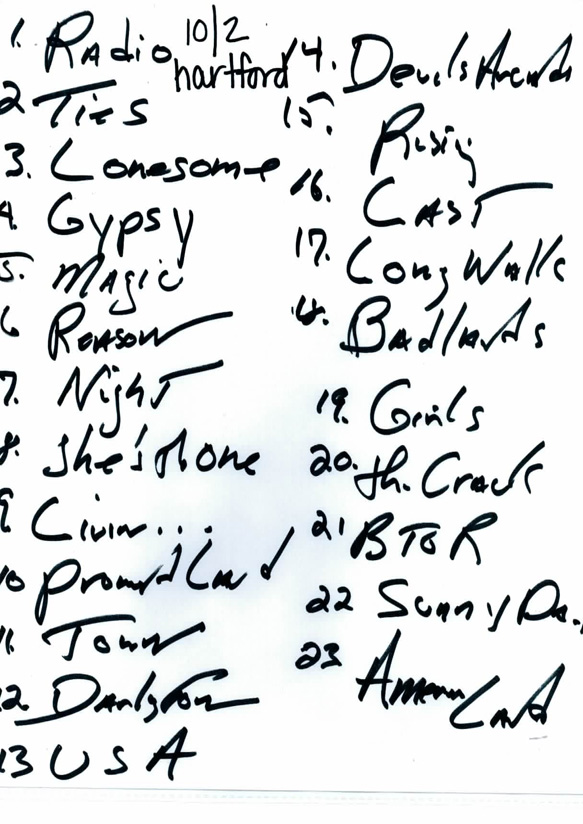 10/2
hartford
1. Radio
2 Ties
3. Lonesome
4. Gypsy
5. Magic
6 Reason
7. Night
8. She's the one
9 Livin...
10 Prom'd Land
11. Town
12. Darlington
13 USA
14. Devils Arcade
15. Rising
16. LAST
17. Long Walk
18. Badlands
19. Girls
20. th. Crack
21 BTOR
22 Sunny Da.
23 American Land